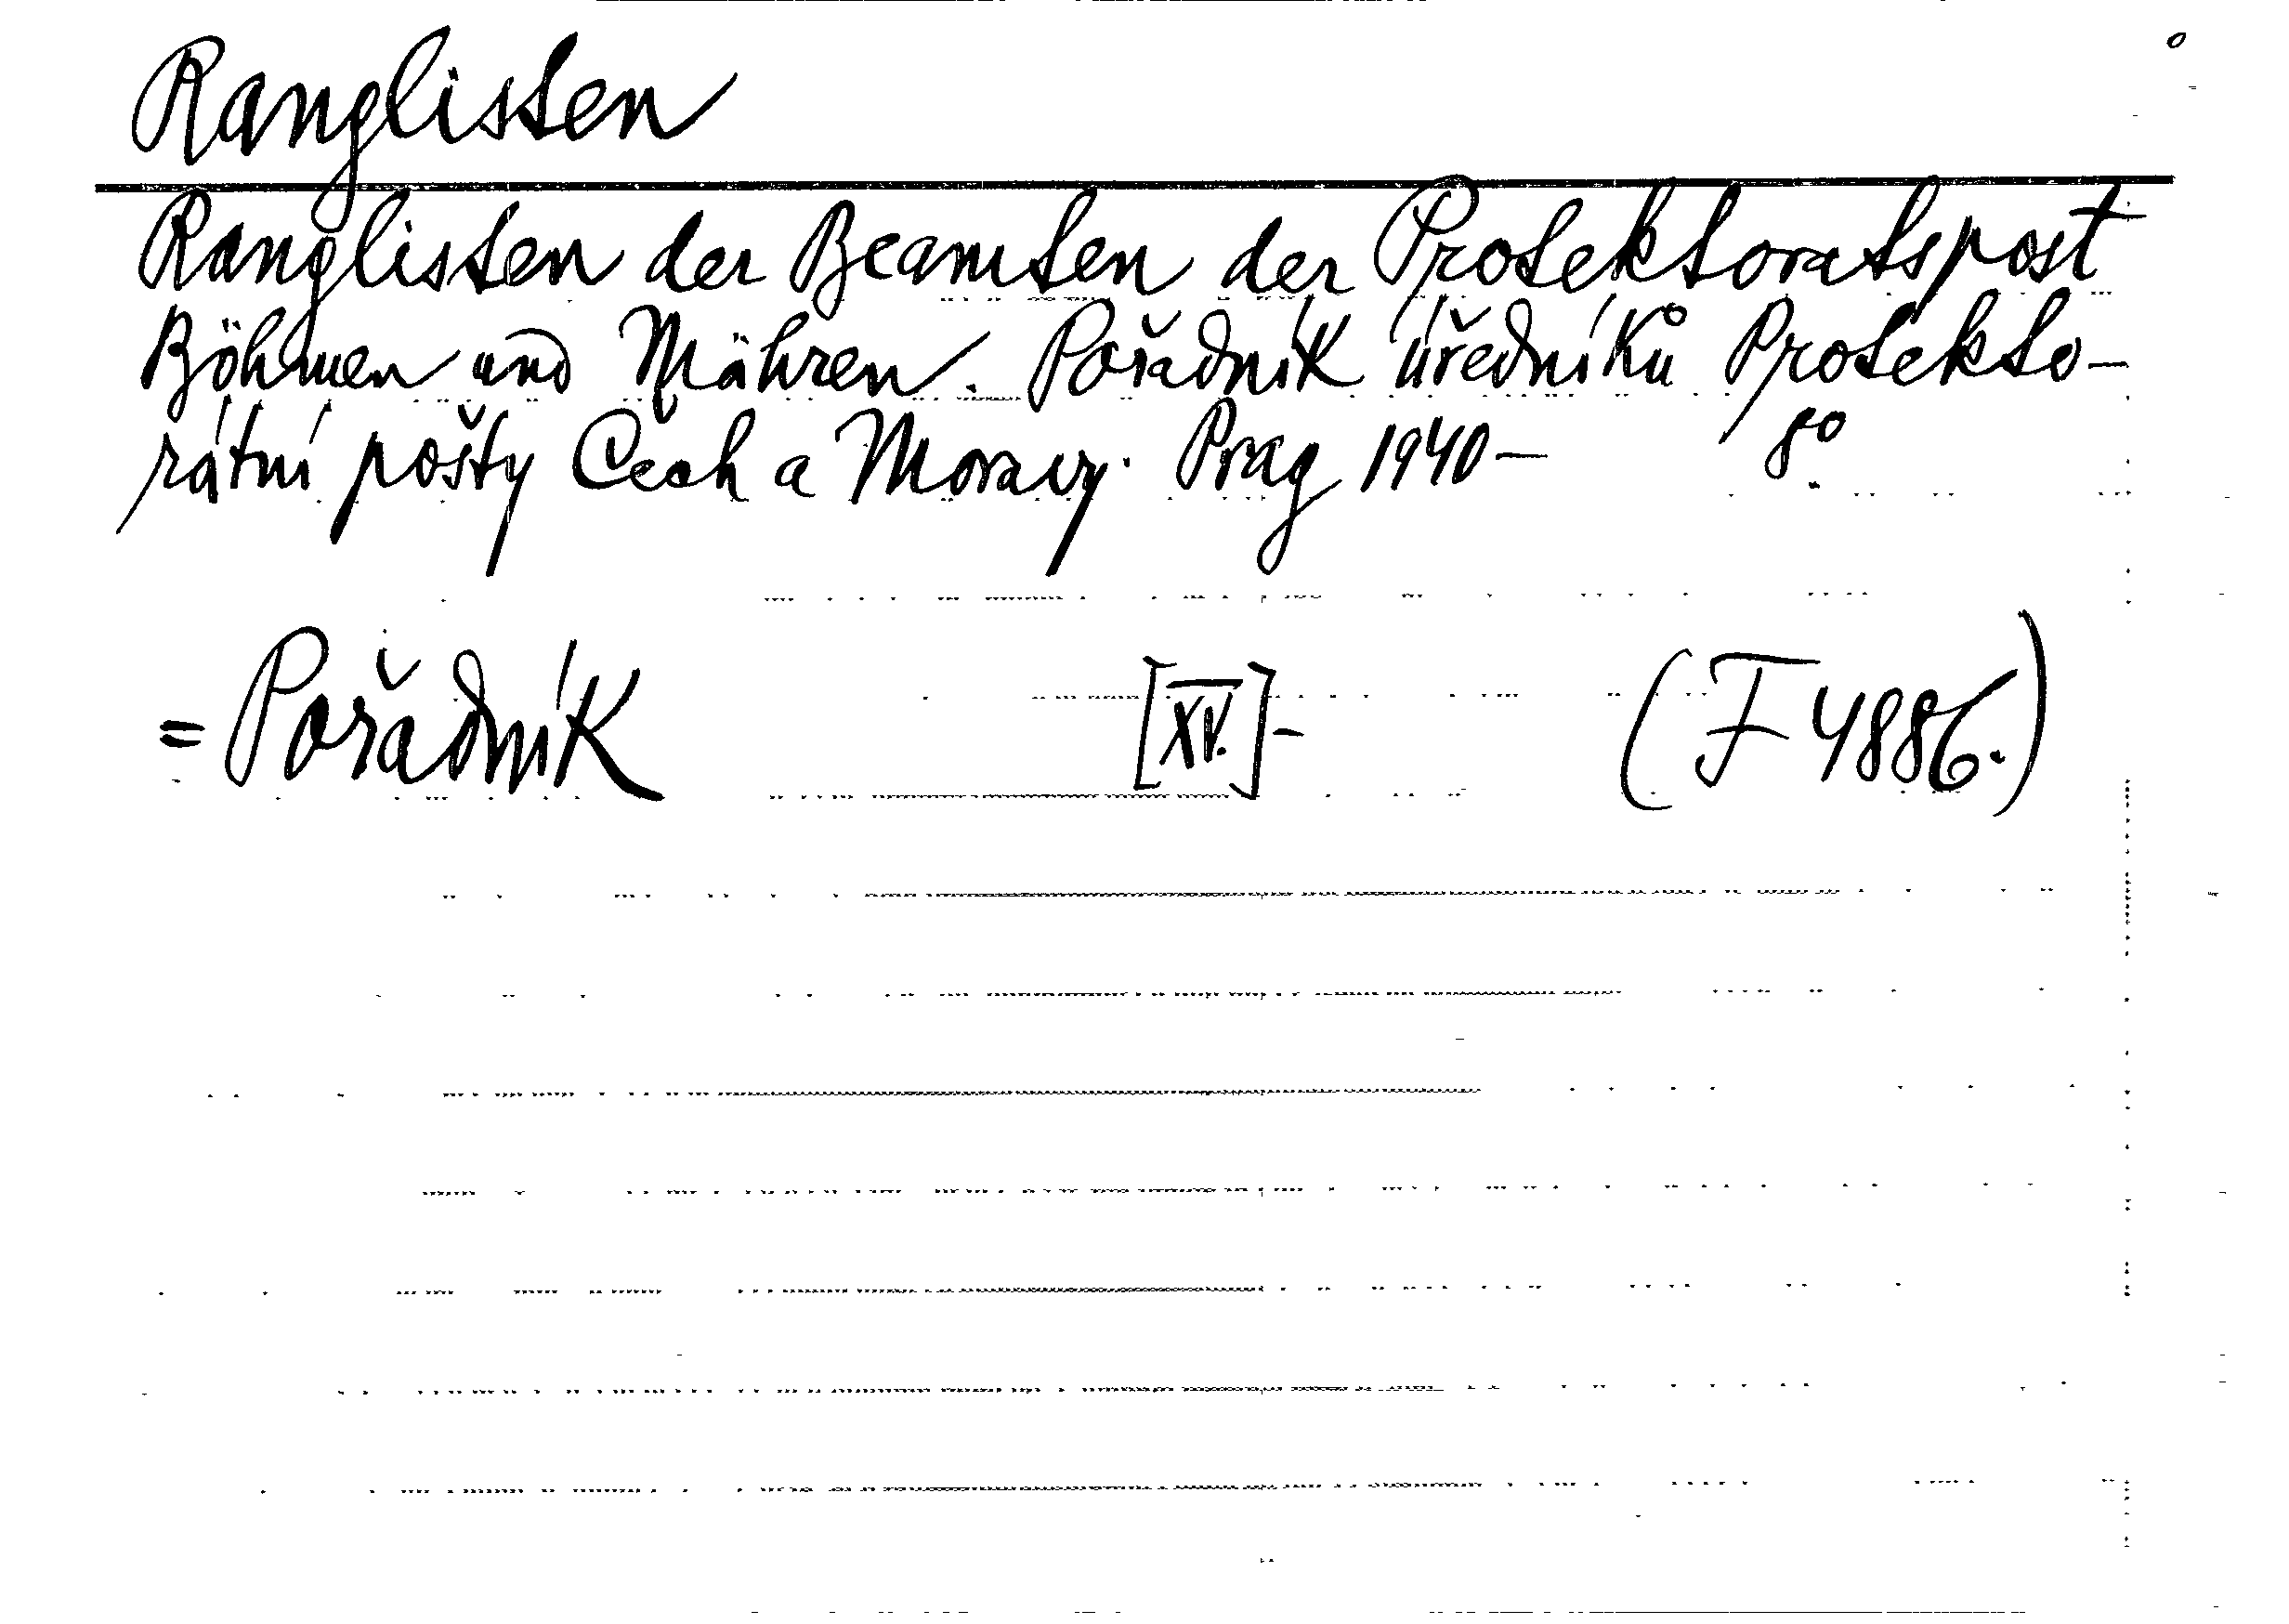 Ranglisten
Ranglisten der Beamten der Protektoratspost
Böhmen und Mähren. Pořadník úředníků Protekto-
rátní pošty Čech a Moravy. Prag 1940- 8°
= Pořadník [XV.]- (F 4886.)